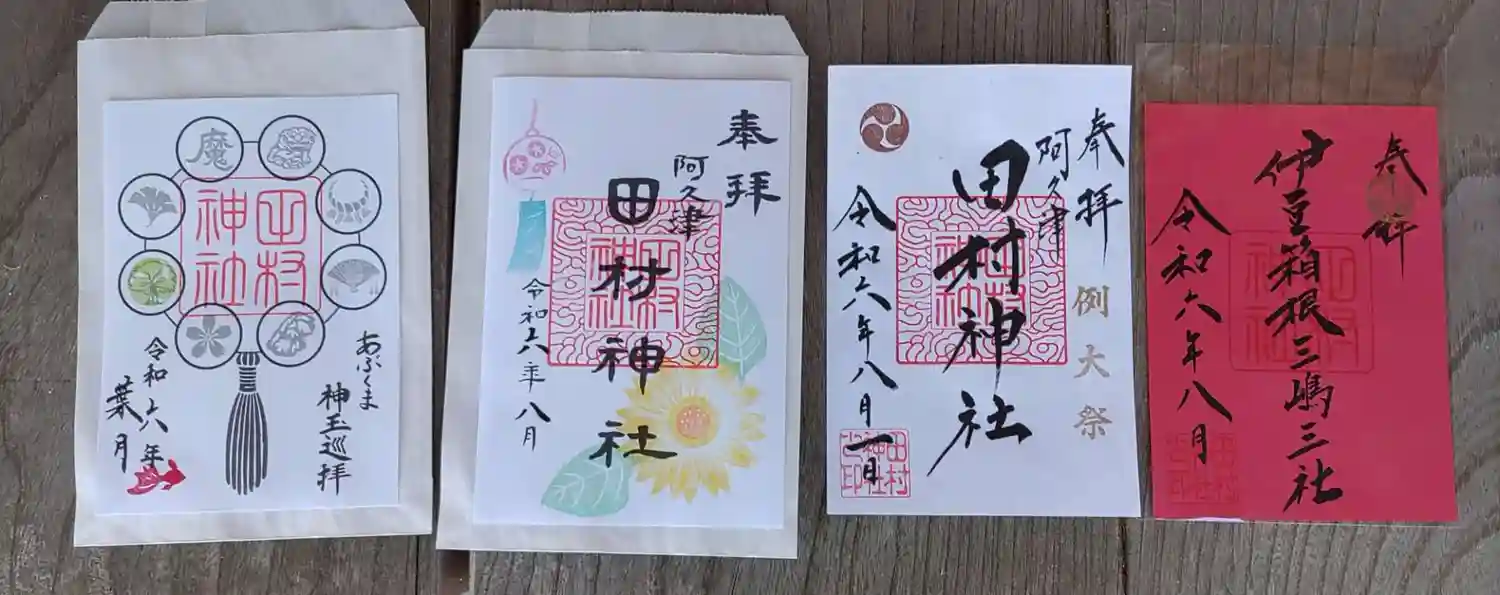 魔
田村
神社
あぶくま
神玉巡拝
令和六年
葉月
奉拝
阿久津
田村神社
田村
神社
令和六年八月
奉拝
阿久津
田村神社
田村
神社
例大祭
令和六年八月一日
田村
神社
之印
奉拝
伊豆箱根三嶋三社
田村
神社
令和六年八月
田村
神社
之印